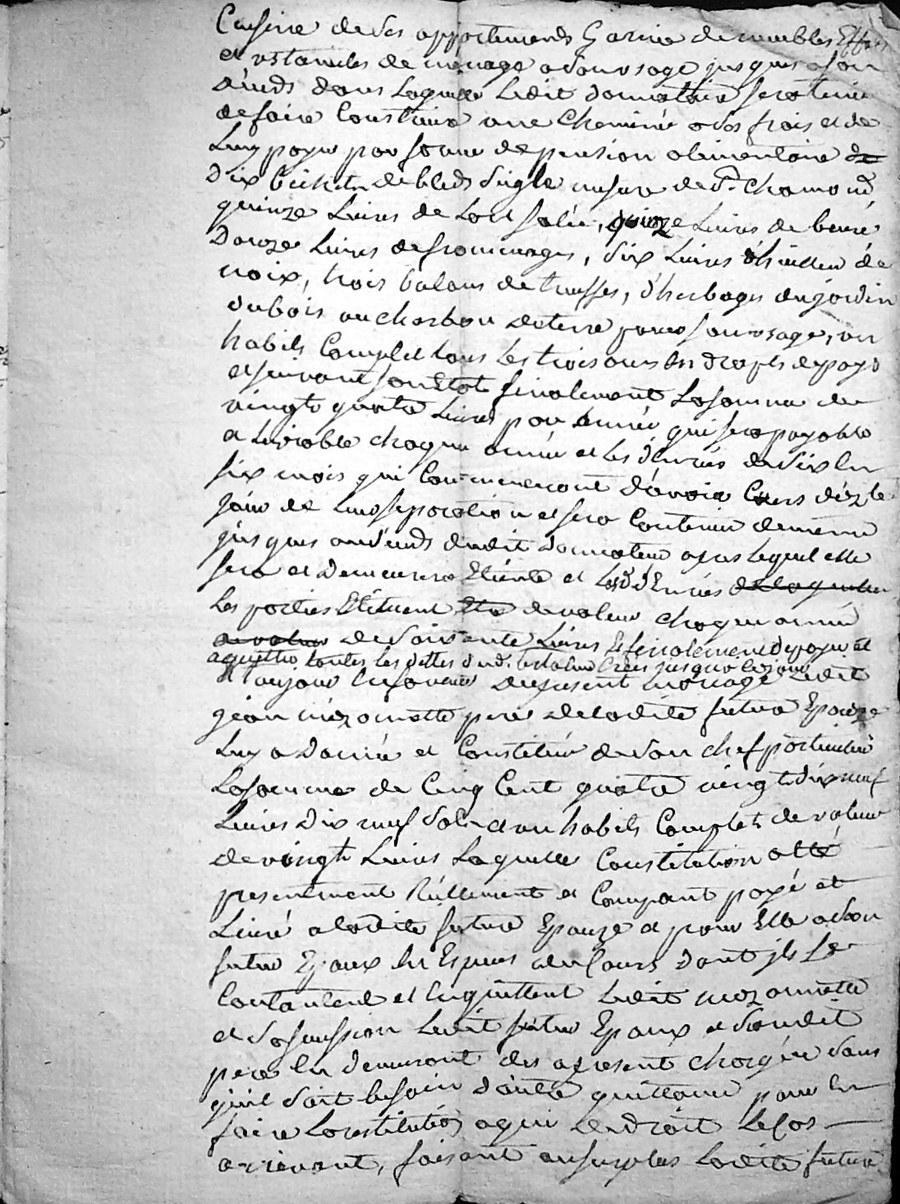 Cuisine de ses appartements Garnie de meubles Effets
et ustanciles de ménage a son usage jusques a son
déceds dans Laquelle Ledit donnataire sera tenu
de faire Construire une Cheminé a ses frais et de
Luy payer par forme de pension alimentaire de
Dix bichets de bleds seigle mesure de St. Chamond
quinze Livres de Lart salée, quinze Livres de beure
Douze Livres de frommages, six Livres d'huille de
noix, trois balans de truffes, d'herbages du jardin
du bois ou charbon de terre pour son usage, un
habits Complet tous Les trois ans En draps de pays
et suivant son Etat finalement La somme de
vingt quatre Livres par année qui sera payable
chaque année et Les d'enrées de six En
six mois qui Commenceront d'avoir Cours dèz le
jour de Leur separation et sera Continué de meme
jusques au déceds dudit donnateur apres Lequel elle
sera et demeurera Eteinte et Lesd. d'Enrées de laquelle
Les parties Estiment Etre de valeur chaque année
de valeur de soixante Livres Et finalement de payer et
aquitter toutes les dettes dud. créés jusqua ce jour
en faveur du present mariage Ledit
jean mézonnette pere de Ladite future Epouze
Luy a donnée et Constitué de son chef particulier
La somme de Cinq Cent quatre vingt dix neuf
Livres Dix neuf sols et un habits Complet de valeur
de vingt Livres Laquelle Constitution a été
presentement Réellement et Comptant payé et
Livré a ladite future Epouze et pour Elle a son
futur Epoux En Especes de Cours dont ils se
Contentent et En quittent Ledit mezonnette
et Ledit futur Epoux et Sondit
pere En demeurent des apresent chargée sans
qu'il soit besoin d'autre quittance pour En
faire La restitution a qui de droit Le Cas
arrivant, faisant au surplus Ladite future